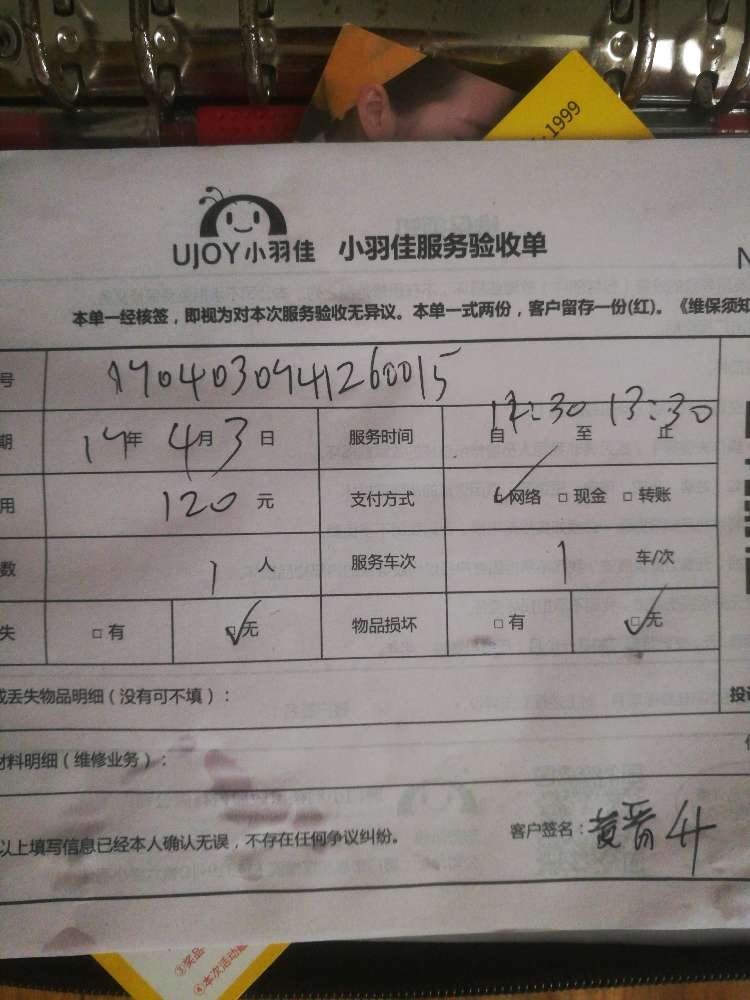 1999
UJOY小羽佳 小羽佳服务验收单
N
本单一经核签，即视为对本次服务验收无异议。本单一式两份，客户留存一份(红)。《维保须知
号 1704030941260015
期 17年 4月 3日 服务时间 自 12:30 至 13:30 止
用 120元 支付方式 网络 □现金 □转账
数 1人 服务车次 1 车/次
失 □有 ☑无 物品损坏 □有 ☑无
或丢失物品明细（没有可不填）： 投诉
材料明细（维修业务）：
以上填写信息已经本人确认无误，不存在任何争议纠纷。 客户签名：黄晋升
③奖品
④本次活动